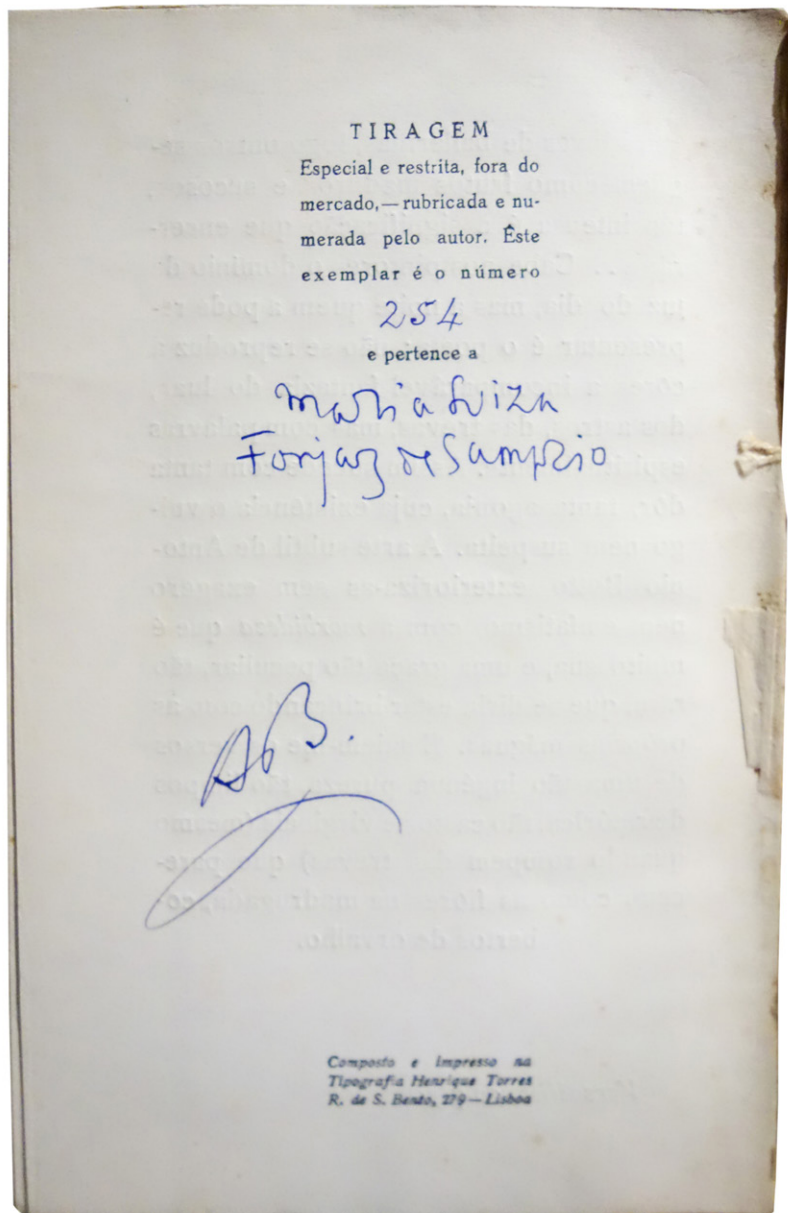 TIRAGEM
Especial e restrita, fora do
mercado,—rubricada e nu-
merada pelo autor. Êste
exemplar é o número
254
e pertence a
Maria Luiza
Forjaz de Sampaio
A B.
Composto e impresso na
Tipografia Henrique Torres
R. de S. Bento, 279—Lisboa